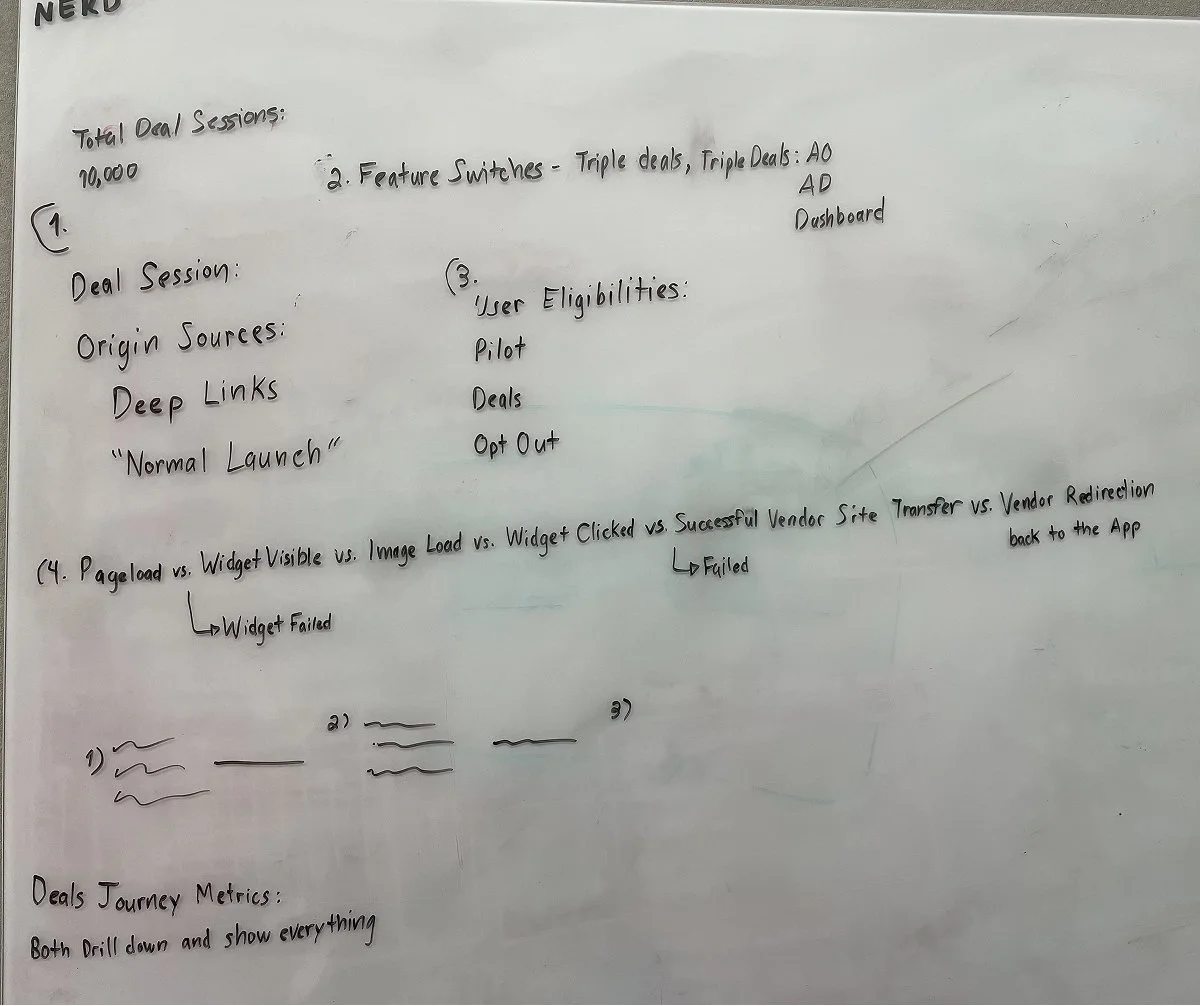 NERD
Total Deal Sessions:
10,000
2. Feature Switches - Triple deals, Triple Deals: AO
AD
Dashboard
(1.
Deal Session:
Origin Sources:
Deep Links
"Normal Launch"
(3.
User Eligibilities:
Pilot
Deals
Opt Out
(4. Pageload vs. Widget Visible vs. Image Load vs. Widget Clicked vs. Successful Vendor Site Transfer vs. Vendor Redirection
back to the App
↳ Failed
↳ Widget Failed
1)
2)
3)
Deals Journey Metrics:
Both Drill down and show everything